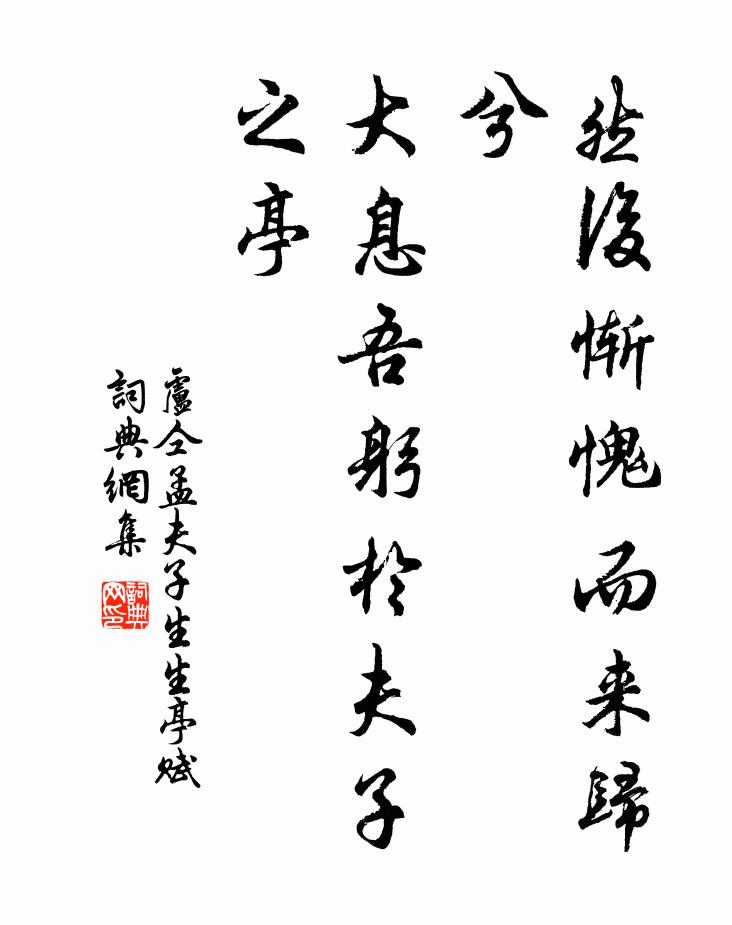 然後慚愧而来歸
兮
大息吾躬於夫子
之亭
盧仝孟夫子生生亭賦
詞典網集
詞典网印